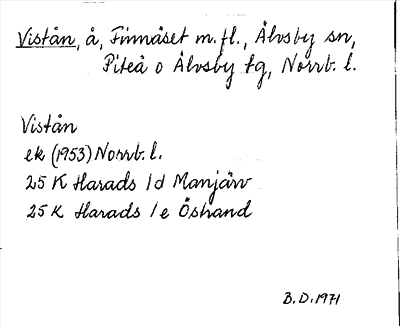 Vistån, å, Finnäset m.fl., Älvsby sn,
Piteå o Älvsby tg, Norrb. l.
Vistån
ek (1953) Norrb. l.
25 K Harads 1d Manjärv
25 K Harads 1e Östrand
B.D. 1971